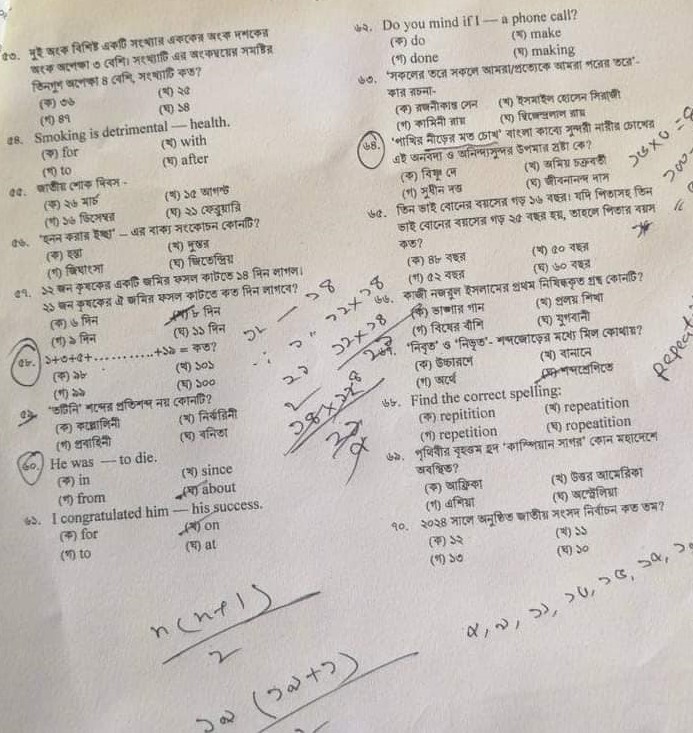 ৫৩. দুই অংক বিশিষ্ট একটি সংখ্যার এককের অংক দশকের
অংক অপেক্ষা ৩ বেশি। সংখ্যাটি এর অংকদ্বয়ের সমষ্টির
তিনগুণ অপেক্ষা ৪ বেশি, সংখ্যাটি কত?
(ক) ৩৬ (খ) ২৫
(গ) ৪৭ (ঘ) ১৪
৫৪. Smoking is detrimental — health.
(ক) for (খ) with
(গ) to (ঘ) after
৫৫. জাতীয় শোক দিবস -
(ক) ২৬ মার্চ (খ) ১৫ আগস্ট
(গ) ১৬ ডিসেম্বর (ঘ) ২১ ফেব্রুয়ারি
৫৬. 'হনন করার ইচ্ছা' – এর বাক্য সংকোচন কোনটি?
(ক) হন্তা
(গ) জিঘাংসা (ঘ) জিতেন্দ্রিয়
৫৭. ১২ জন কৃষকের একটি জমির ফসল কাটতে ১৪ দিন লাগল।
২১ জন কৃষকের ঐ জমির ফসল কাটতে কত দিন লাগবে?
(ক) ৬ দিন (খ) ৮ দিন
(গ) ৯ দিন (ঘ) ১১ দিন
৫৮. ১+৩+৫+...........+১৯ = কত?
(ক) ৯৮ (খ) ১০১
(গ) ৯৯ (ঘ) ১০০
৫৯. 'তটিনি' শব্দের প্রতিশব্দ নয় কোনটি?
(ক) কল্লোলিনী (খ) নির্ঝরিনী
(গ) প্রবাহিনী (ঘ) বনিতা
৬০. He was — to die.
(ক) in (খ) since
(গ) from (ঘ) about
৬১. I congratulated him — his success.
(ক) for (খ) on
(গ) to (ঘ) at
n(n+1)
2
১৯(১৯+১)
৬২. Do you mind if I — a phone call?
(ক) do (খ) make
(গ) done (ঘ) making
৬৩. 'সকলের তরে সকলে আমরা/প্রত্যেকে আমরা পরের তরে'-
কার রচনা-
(ক) রজনীকান্ত সেন (খ) ইসমাইল হোসেন সিরাজী
(গ) কামিনী রায় (ঘ) দ্বিজেন্দ্রলাল রায়
৬৪. 'পাখির নীড়ের মত চোখ' বাংলা কাব্যে সুন্দরী নারীর চোখের
এই অনবদ্য ও অনিন্দ্যসুন্দর উপমার স্রষ্টা কে?
(ক) বিষ্ণু দে (খ) অমিয় চক্রবর্তী
(গ) সুধীন দত্ত (ঘ) জীবনানন্দ দাস
৬৫. তিন ভাই বোনের বয়সের গড় ১৬ বছর। যদি পিতাসহ তিন
ভাই বোনের বয়সের গড় ২৫ বছর হয়, তাহলে পিতার বয়স
কত?
(ক) ৪৮ বছর (খ) ৫০ বছর
(গ) ৫২ বছর (ঘ) ৬০ বছর
৬৬. কাজী নজরুল ইসলামের প্রথম নিষিদ্ধকৃত গ্রন্থ কোনটি?
(ক) ভাঙ্গার গান (খ) প্রলয় শিখা
(গ) বিষের বাঁশি (ঘ) যুগবাণী
৬৭. 'নিবৃত' ও 'নিভৃত'- শব্দজোড়ের মধ্যে মিল কোথায়?
(ক) উচ্চারণে (খ) বানানে
(গ) অর্থে (ঘ) শব্দশ্রেণিতে
৬৮. Find the correct spelling:
(ক) repitition (খ) repeatition
(গ) repetition (ঘ) ropeatition
৬৯. পৃথিবীর বৃহত্তম হ্রদ 'কাস্পিয়ান সাগর' কোন মহাদেশে
অবস্থিত?
(ক) আফ্রিকা (খ) উত্তর আমেরিকা
(গ) এশিয়া (ঘ) অস্ট্রেলিয়া
৭০. ২০২৪ সালে অনুষ্ঠিত জাতীয় সংসদ নির্বাচন কত তম?
(ক) ১২ (খ) ১১
(গ) ১৩ (ঘ) ১০